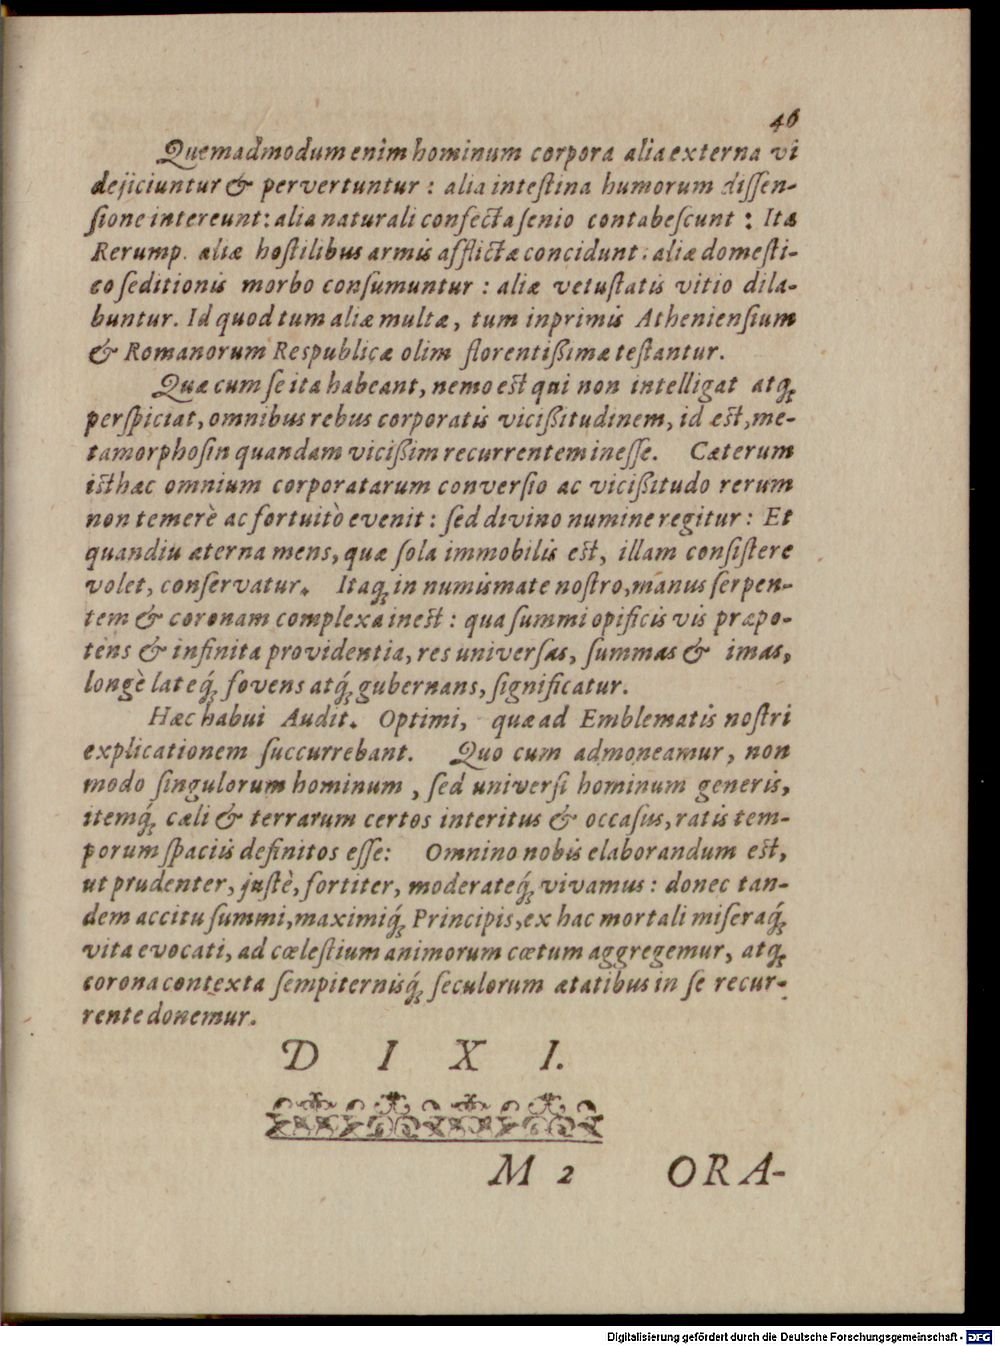 46
Quemadmodum enim hominum corpora alia externa vi
dejiciuntur & pervertuntur : alia intestina humorum dissen-
sione intereunt: alia naturali confecta senio contabescunt : Ita
Rerump. aliæ hostilibus armis afflictæ concidunt: aliæ domesti-
co seditionis morbo consumuntur : aliæ vetustatis vitio dila-
buntur. Id quod tum aliæ multæ, tum inprimis Atheniensium
& Romanorum Respublicæ olim florentißimæ testantur.
Quæ cum se ita habeant, nemo est qui non intelligat atq;
perspiciat, omnibus rebus corporatis vicißitudinem, id est, me-
tamorphosin quandam vicißim recurrentem inesse. Cæterum
isthæc omnium corporatarum conversio ac vicißitudo rerum
non temerè ac fortuitò evenit : sed divino numine regitur : Et
quandiu æterna mens, quæ sola immobilis est, illam consistere
volet, conservatur. Itaq; in numismate nostro, manus serpen-
tem & coronam complexa inest : qua summi opificis vis præpo-
tens & infinita providentia, res universas, summas & imas,
longè lateq́; fovens atq́; gubernans, significatur.
Hæc habui Audit. Optimi, quæ ad Emblematis nostri
explicationem succurrebant. Quo cum admoneamur, non
modo singulorum hominum, sed universi hominum generis,
itemq́; cæli & terrarum certos interitus & occasus, ratis tem-
porum spaciis definitos esse: Omnino nobis elaborandum est,
ut prudenter, justè, fortiter, moderateq́; vivamus : donec tan-
dem accitu summi, maximiq́; Principis, ex hac mortali miseraq́;
vita evocati, ad cœlestium animorum cœtum aggregemur, atq;
corona contexta sempiternisq́; seculorum ætatibus in se recur-
rente donemur.
D I X I.
M 2 ORA-
Digitalisierung gefördert durch die Deutsche Forschungsgemeinschaft - DFG